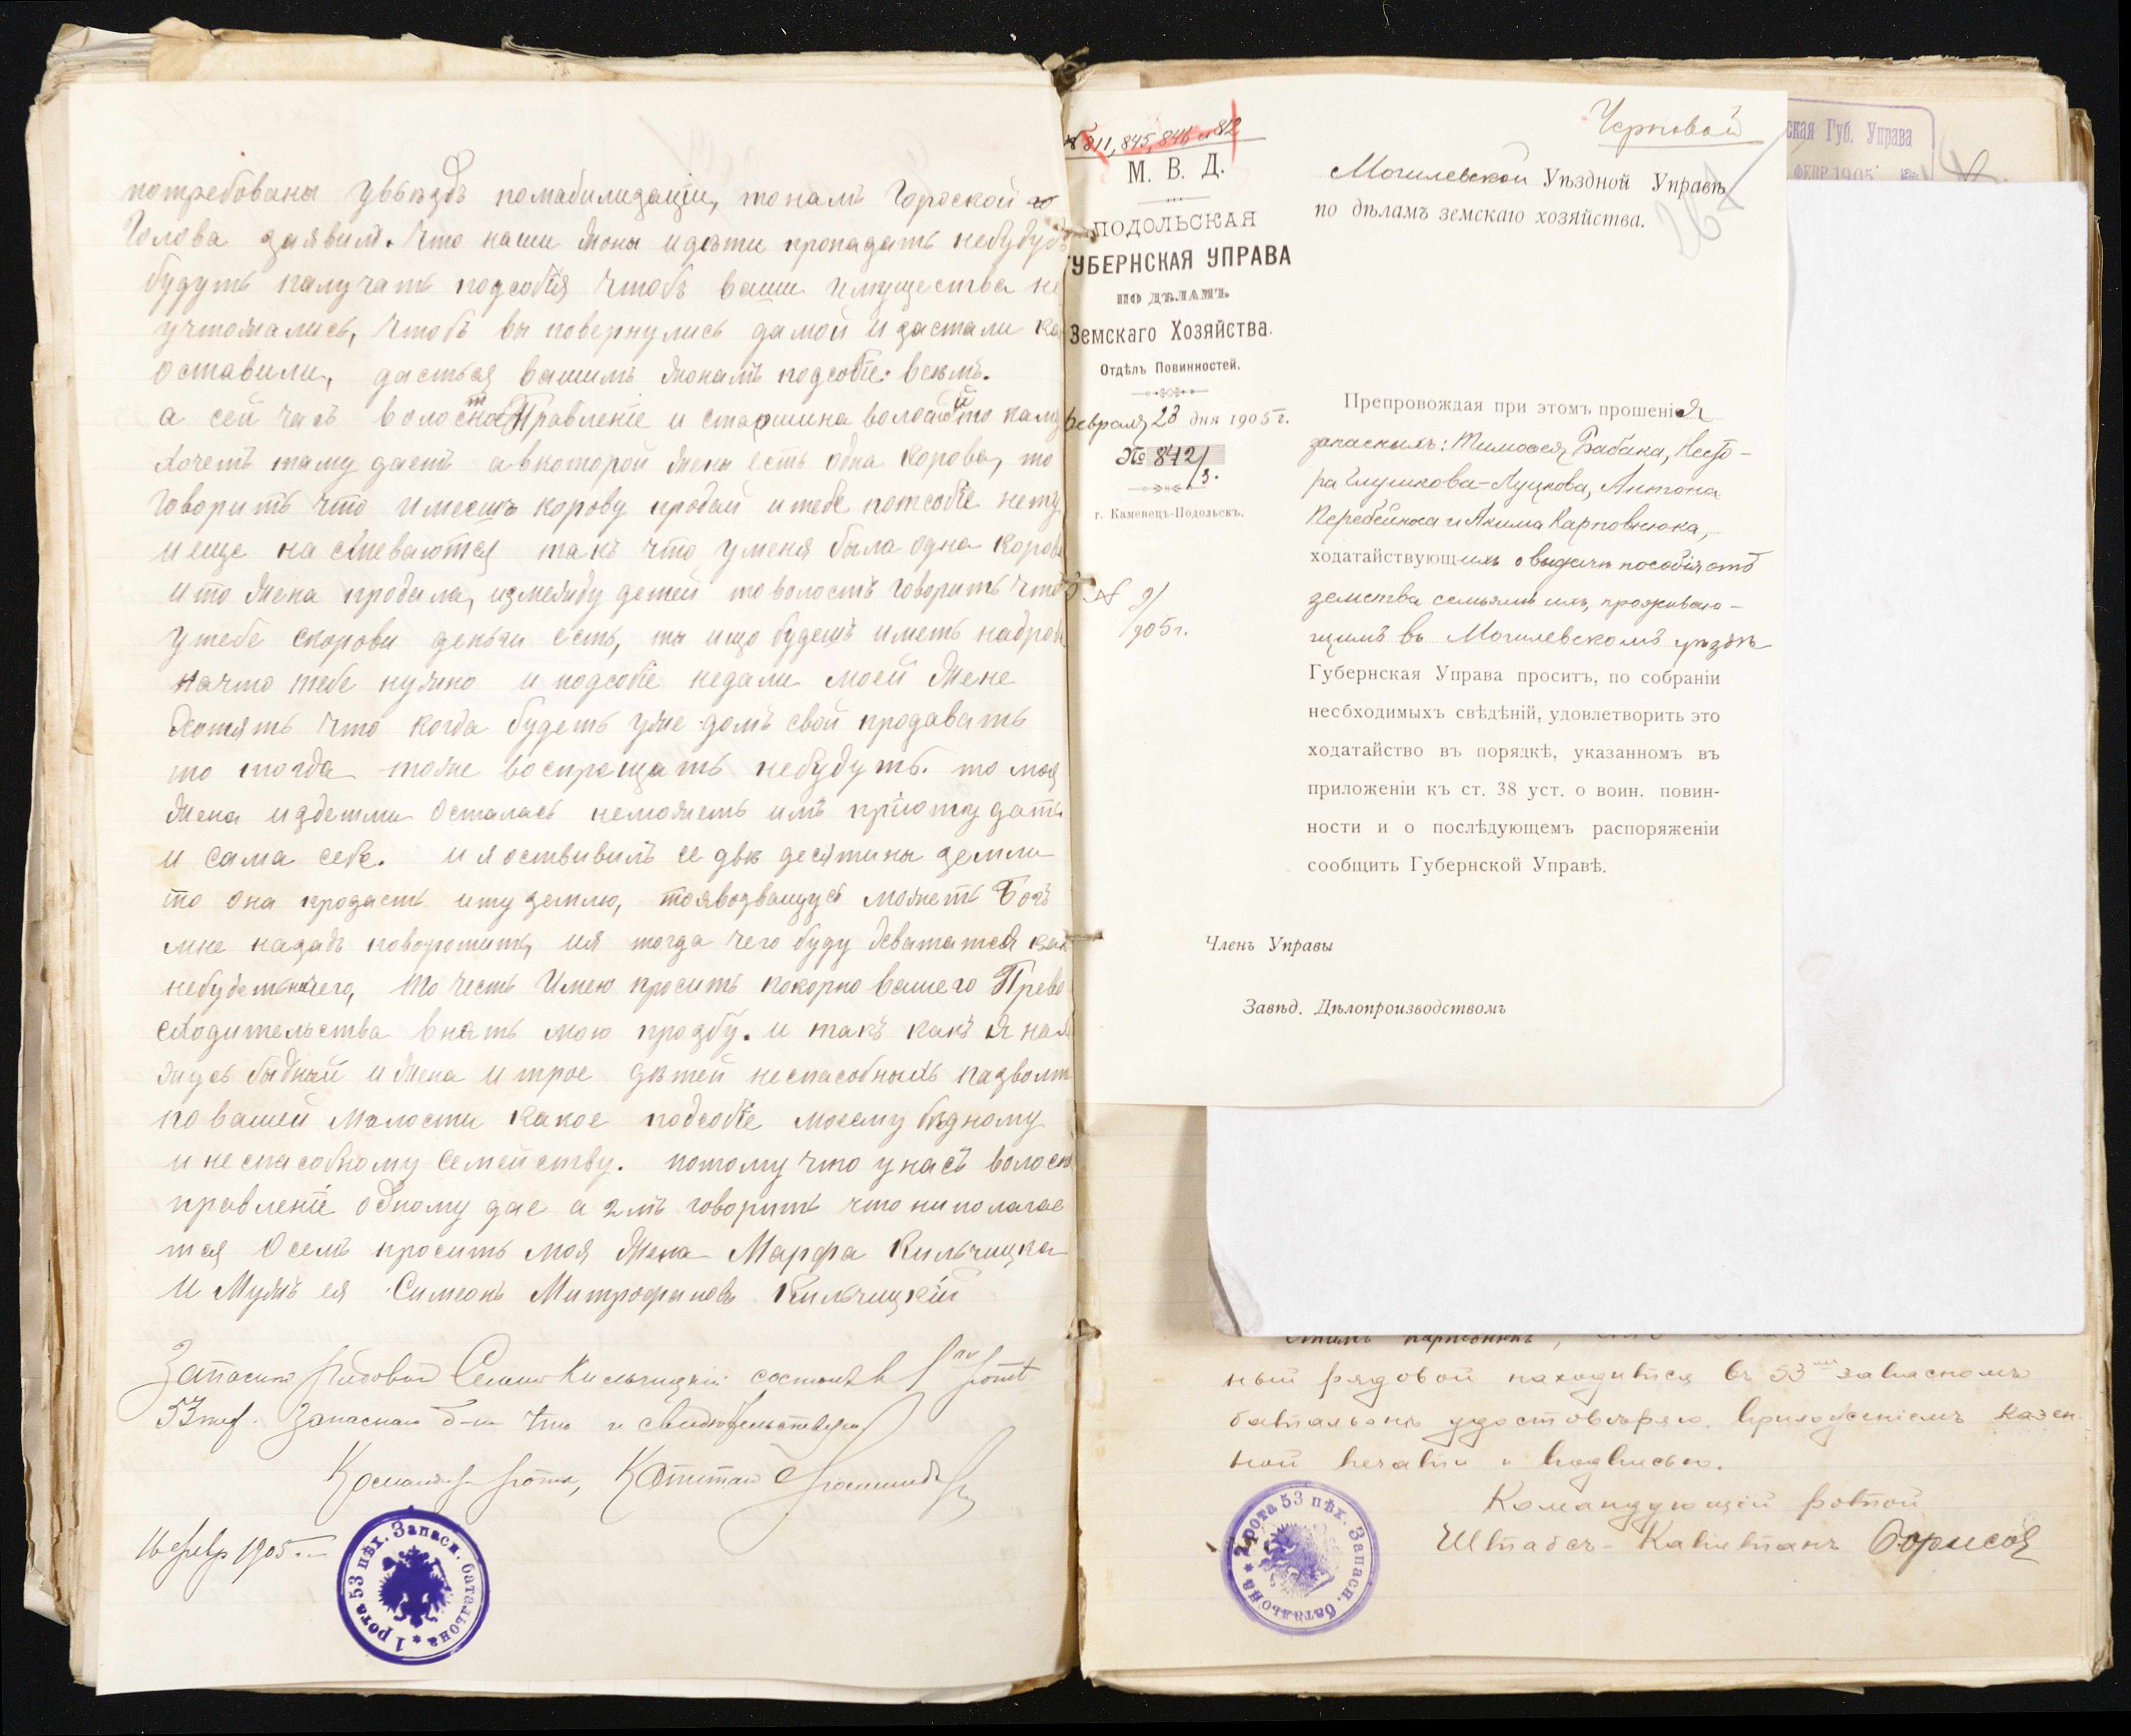 потребованы увѣздъ помабилизаціи, то намъ Городской
Голова заявилъ. что наши жоны идѣти пропадать небудудъ
будуть палучать подсобія чтобъ ваши имущества не
учтожались, чтобъ вы повернулись дамой и застали
оставили, дасться вашимъ жонамъ подсобіе: всемъ.
а сей часъ волостное Правленіе и старшина волостной то каму
хочеть таму даеть авкоторой жены есть одна корова, то
говорить что имеешъ корову продай итебе потсобіе нету
иеще насмеваются такъ что уменя была одна корова
ито жена продала, измежду детей товолость говорить что
утебе скорови деньги есть, ты ищо будешъ иметь
начто тебе нужно и подсобіе недали моей жене
хотять что когда будеть уже домъ свой продавать
то тогда тоже воспрещать небудуть. то моя
жена издетми осталась неможеть имъ пріюту дать
и сама себе. и я оствивилъ ее двѣ десятины земли
то она продасть иту землю, тоявозвращусь можеть Богъ
мне назадъ поворотить, ия тогда чего буду хвататся
небудетьнечего, то честь имею просить покорно вашего Прево
сходительства внять мою прозбу. и такъ какъ я нах
жусь бѣдный и жена и трое дѣтей неспасобныхъ
повашей малости какое подсобіе моему бѣдному
и неспасобному семейству. потому что унасъ
правленіе одному дае а 2мъ говорить что ниполагае
тся Осемъ просить моя жена Марфа Кильчицка
и Мужъ ея Симеонъ Митрофановъ Кильчицкій
Запасной рядовой Семенъ Кильчицкій состоитъ въ 1й ротѣ
53 пех. запаснаго б-на что и свидѣтельствую
Командиръ роты, Капитанъ
16 февр 1905
1 рота 53 пѣх. Запасн. батальона
№ 811, 845, 846 и 812
М. В. Д.
ПОДОЛЬСКАЯ
ГУБЕРНСКАЯ УПРАВА
ПО ДѢЛАМЪ
Земскаго Хозяйства.
Отдѣлъ Повинностей.
Февраля 23 дня 1905 г.
№ 842/3.
г. Каменецъ-Подольскъ.
905 г.
Черновой
Могилевской Уѣздной Управѣ
по дѣламъ земскаго хозяйства.
Препровождая при этомъ прошенія
запасныхъ: Тимофея Бабака, Несто-
ра Глушкова-Луцкова, Антона
Перебейноса и Акима Карповнюка,
ходатайствующихъ о выдачѣ пособія отъ
земства семьямъ ихъ, проживаю-
щимъ въ Могилевскомъ уѣздѣ
Губернская Управа проситъ, по собраніи
несбходимыхъ свѣдѣній, удовлетворить это
ходатайство въ порядкѣ, указанномъ въ
приложеніи къ ст. 38 уст. о воин. повин-
ности и о послѣдующемъ распоряженіи
сообщить Губернской Управѣ.
Членъ Управы
Завѣд. Дѣлопроизводствомъ
ская Губ. Управа
ФЕВР 1905
ный рядовой находится въ 53 запасномъ
батальонѣ удостовѣряю, приложеніемъ казен
ной печати и подписью.
Командующій ротой
Штабсъ-Капитанъ Борисов
2 рота 53 пѣх. Запасн. батальона